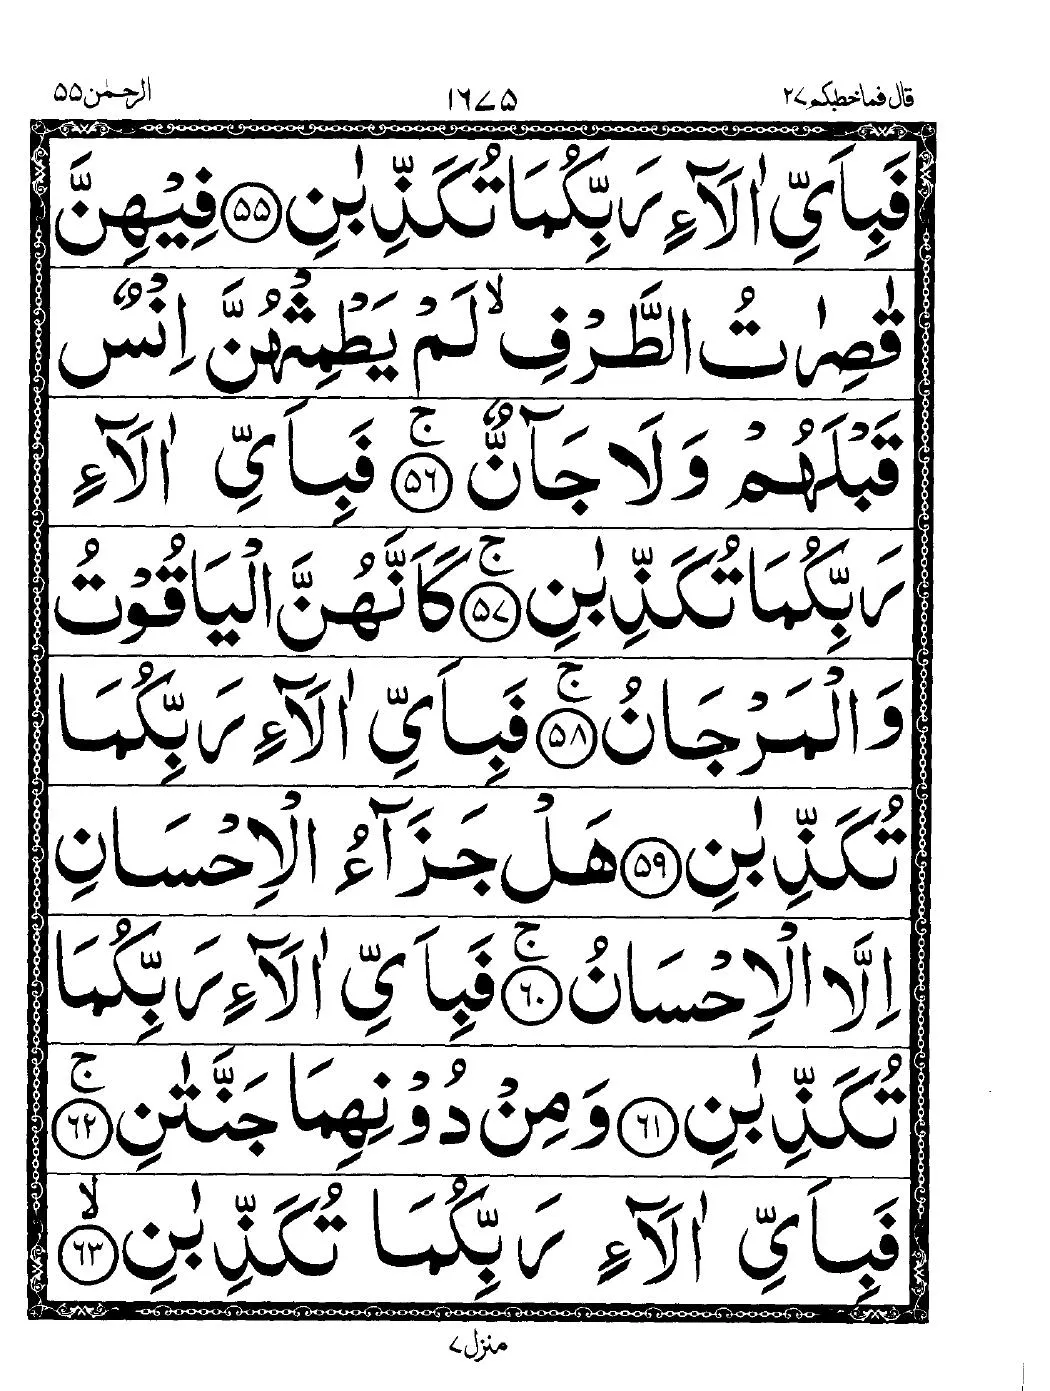 قال فما خطبكم ٢٧ ١٦٧٥ الرحمٰن ٥٥
فَبِاَىِّ اٰلَآءِ رَبِّكُمَا تُكَذِّبٰنِ ﴿٥٥﴾ فِيْهِنَّ
قٰصِرٰتُ الطَّرْفِ ۙ لَمْ يَطْمِثْهُنَّ اِنْسٌ
قَبْلَهُمْ وَلَا جَآنٌّ ۚ ﴿٥٦﴾ فَبِاَىِّ اٰلَآءِ
رَبِّكُمَا تُكَذِّبٰنِ ۚ ﴿٥٧﴾ كَاَنَّهُنَّ الْيَاقُوْتُ
وَالْمَرْجَانُ ۚ ﴿٥٨﴾ فَبِاَىِّ اٰلَآءِ رَبِّكُمَا
تُكَذِّبٰنِ ﴿٥٩﴾ هَلْ جَزَآءُ الْاِحْسَانِ
اِلَّا الْاِحْسَانُ ۚ ﴿٦٠﴾ فَبِاَىِّ اٰلَآءِ رَبِّكُمَا
تُكَذِّبٰنِ ﴿٦١﴾ وَمِنْ دُوْنِهِمَا جَنَّتٰنِ ۚ ﴿٦٢﴾
فَبِاَىِّ اٰلَآءِ رَبِّكُمَا تُكَذِّبٰنِ ۙ ﴿٦٣﴾
منزل ٧